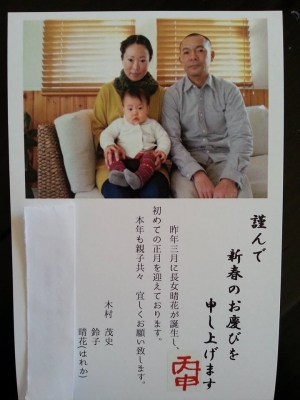 謹んで
新春のお慶びを
申し上げます
丙申
昨年三月に長女晴花が誕生し、
初めての正月を迎えております。
本年も親子共々　宜しくお願い致します。
木村　茂史
鈴子
晴花(はれか)